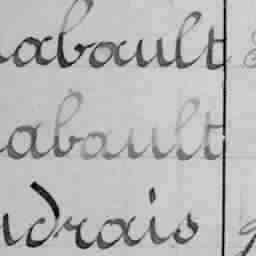 abault
abault
udrais